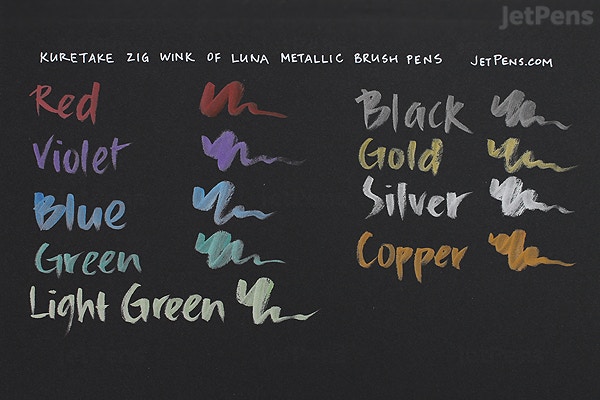 JetPens
KURETAKE ZIG WINK OF LUNA METALLIC BRUSH PENS JETPENS.COM
Red
Violet
Blue
Green
Light Green
Black
Gold
Silver
Copper